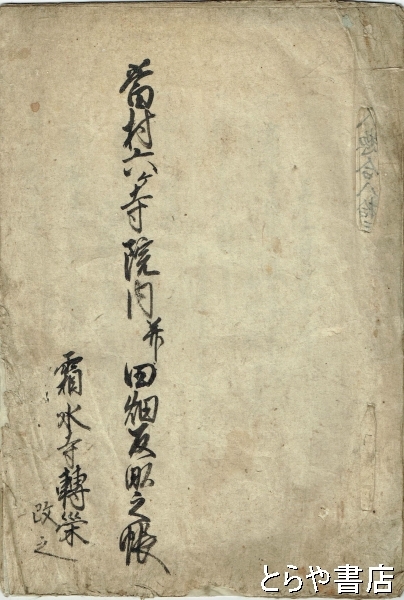 當村六ヶ寺院内并田畑反畝之帳
霜水寺轉榮
改之
とらや書店